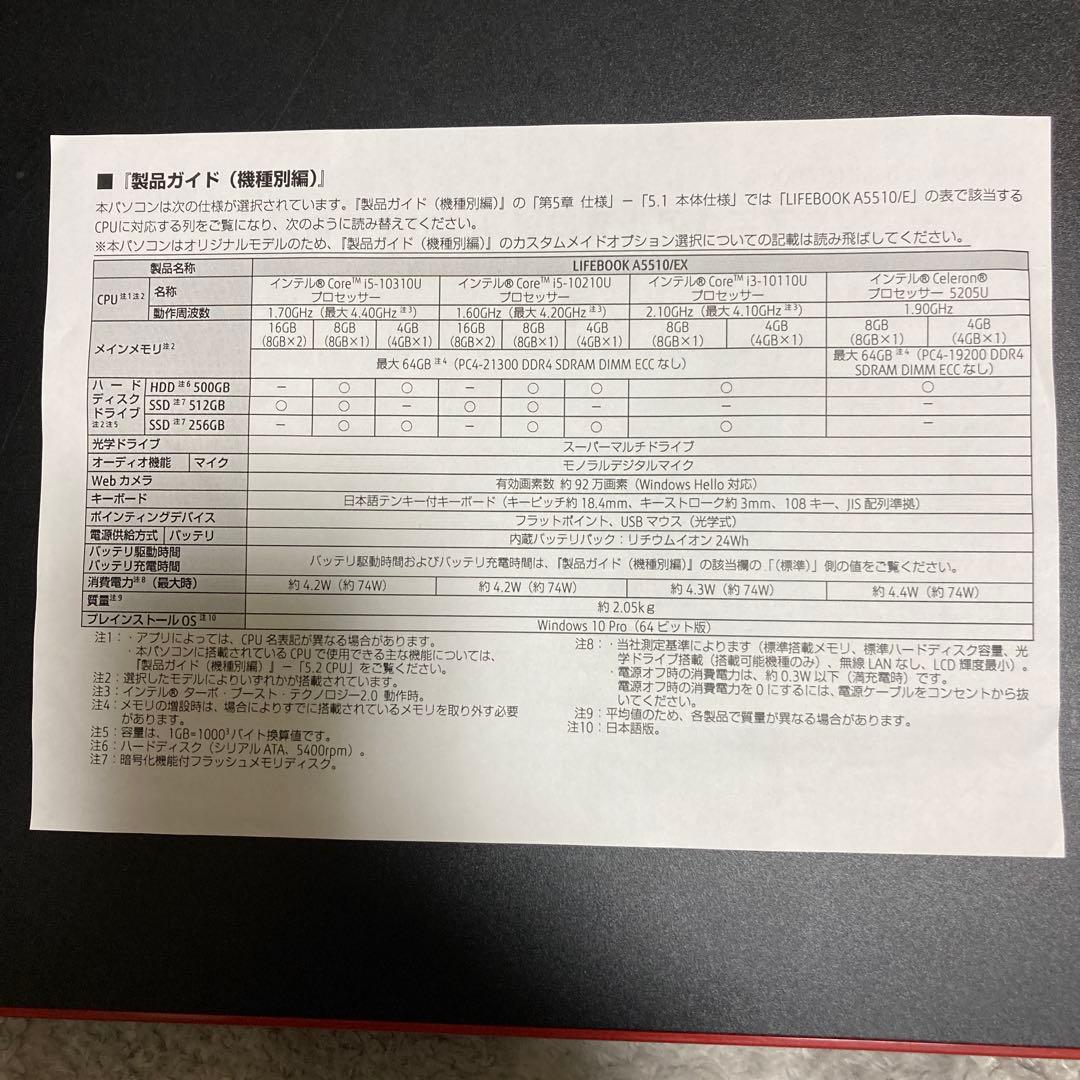 ■『製品ガイド（機種別編）』
本パソコンは次の仕様が選択されています。『製品ガイド（機種別編）』の「第5章 仕様」－「5.1 本体仕様」では「LIFEBOOK A5510/E」の表で該当する
CPUに対応する列をご覧になり、次のように読み替えてください。
※本パソコンはオリジナルモデルのため、『製品ガイド（機種別編）』のカスタムメイドオプション選択についての記載は読み飛ばしてください。
製品名称 LIFEBOOK A5510/EX
CPU 注1注2 名称 インテル® Core™ i5-10310U プロセッサー インテル® Core™ i5-10210U プロセッサー インテル® Core™ i3-10110U プロセッサー インテル® Celeron® プロセッサー 5205U
動作周波数 1.70GHz（最大 4.40GHz 注3） 1.60GHz（最大 4.20GHz 注3） 2.10GHz（最大 4.10GHz 注3） 1.90GHz
メインメモリ注2 16GB (8GB×2) 8GB (8GB×1) 4GB (4GB×1) 16GB (8GB×2) 8GB (8GB×1) 4GB (4GB×1) 8GB (8GB×1) 4GB (4GB×1) 8GB (8GB×1) 4GB (4GB×1)
最大 64GB 注4（PC4-21300 DDR4 SDRAM DIMM ECC なし） 最大 64GB 注4（PC4-19200 DDR4 SDRAM DIMM ECC なし）
ハードディスクドライブ 注2注5 HDD 注6 500GB － ○ ○ － ○ ○ ○ ○
SSD 注7 512GB ○ ○ － ○ ○ － － －
SSD 注7 256GB － ○ ○ － ○ ○ ○ －
光学ドライブ スーパーマルチドライブ
オーディオ機能 マイク モノラルデジタルマイク
Web カメラ 有効画素数 約 92 万画素（Windows Hello 対応）
キーボード 日本語テンキー付キーボード（キーピッチ約 18.4mm、キーストローク約 3mm、108 キー、JIS 配列準拠）
ポインティングデバイス フラットポイント、USB マウス（光学式）
電源供給方式 バッテリ 内蔵バッテリパック：リチウムイオン 24Wh
バッテリ駆動時間
バッテリ充電時間 バッテリ駆動時間およびバッテリ充電時間は、『製品ガイド（機種別編）』の該当欄の「（標準）」側の値をご覧ください。
消費電力注8（最大時） 約 4.2W（約 74W） 約 4.2W（約 74W） 約 4.3W（約 74W） 約 4.4W（約 74W）
質量注9 約 2.05kg
プレインストール OS 注10 Windows 10 Pro（64 ビット版）
注1：・アプリによっては、CPU 名表記が異なる場合があります。
・本パソコンに搭載されている CPU で使用できる主な機能については、
『製品ガイド（機種別編）』－「5.2 CPU」をご覧ください。
注2：選択したモデルによりいずれかが搭載されています。
注3：インテル® ターボ・ブースト・テクノロジー2.0 動作時。
注4：メモリの増設時は、場合によりすでに搭載されているメモリを取り外す必要
があります。
注5：容量は、1GB=1000³バイト換算値です。
注6：ハードディスク（シリアル ATA、5400rpm）。
注7：暗号化機能付フラッシュメモリディスク。
注8：・当社測定基準によります（標準搭載メモリ、標準ハードディスク容量、光
学ドライブ搭載（搭載可能機種のみ）、無線 LAN なし、LCD 輝度最小）。
・電源オフ時の消費電力は、約 0.3W 以下（満充電時）です。
電源オフ時の消費電力を 0 にするには、電源ケーブルをコンセントから抜
いてください。
注9：平均値のため、各製品で質量が異なる場合があります。
注10：日本語版。